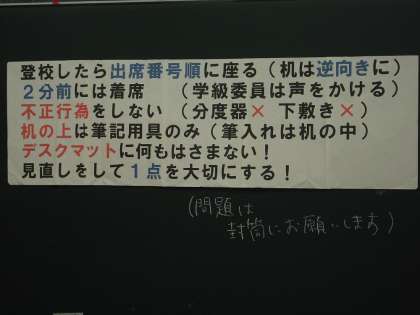 登校したら出席番号順に座る(机は逆向きに)
2分前には着席 (学級委員は声をかける)
不正行為をしない (分度器× 下敷き×)
机の上は筆記用具のみ(筆入れは机の中)
デスクマットに何もはさまない!
見直しをして1点を大切にする!
(問題は
封筒にお願いします)